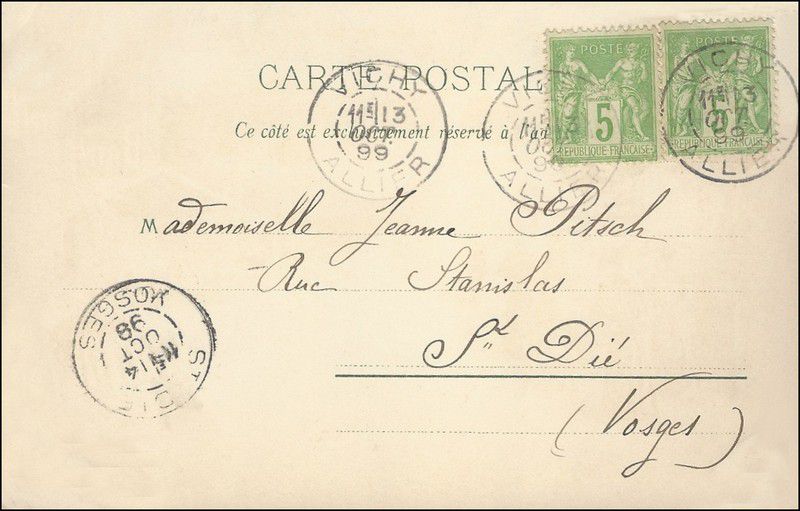 CARTE POSTAL
Ce côté est exclusivement réservé à l'ad
POSTE
5
RÉPUBLIQUE FRANÇAISE
POSTE
5
RÉPUBLIQUE FRANÇAISE
VICHY
11E 13
OCT
99
ALLIER
VICHY
OCT
99
ALLIER
VICHY
11E 13
OCT
99
ALLIER
Mademoiselle Jeanne Pitsch
Rue Stanislas
St Dié
(Vosges)
ST DIE
14
OCT
99
VOSGES